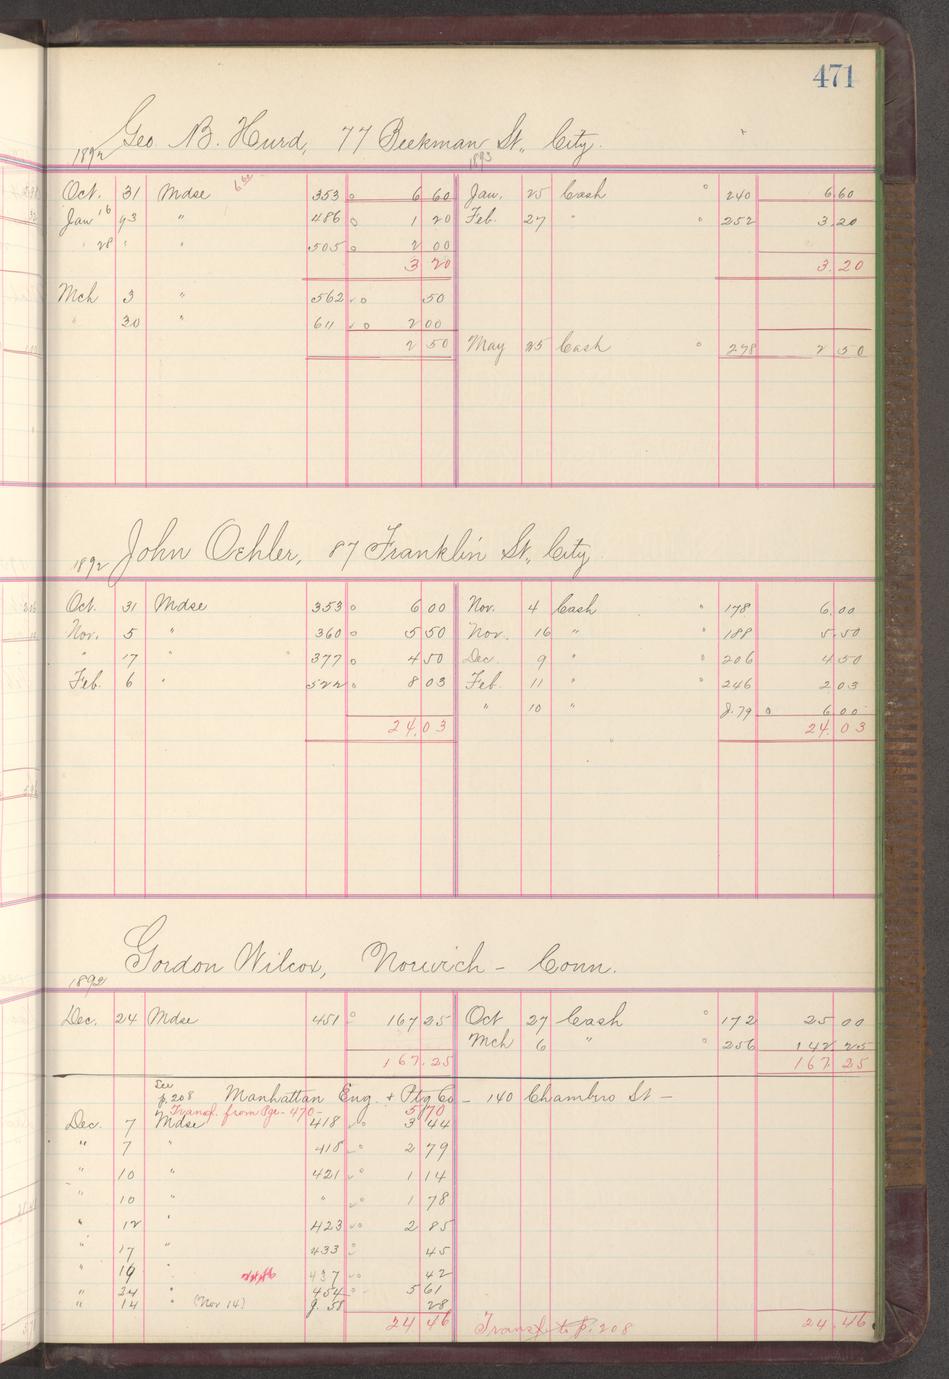 471
Geo. B. Hurd, 77 Beekman St., City.
1892 1893
Oct. 31 Mdse 353 6 60 Jan. 25 Cash 240 6.60
Jan 16 93 " 486 1 20 Feb. 27 " 252 3.20
" 28 " " 505 2 00
3 20 3.20
Mch 3 " 562 50
" 30 " 611 2 00
2 50 May 25 Cash 278 2 50
1892 John Oehler, 87 Franklin St., City
Oct. 31 Mdse 353 6 00 Nov. 4 Cash 178 6.00
Nov. 5 " 360 5 50 Nov. 16 " 188 5.50
" 17 " 377 4 50 Dec. 9 " 206 4 50
Feb. 6 " 522 8 03 Feb. 11 " 246 2 03
" 10 " J. 79 6 00
24.03 24.03
Gordon Wilcox, Norwich - Conn.
1892
Dec. 24 Mdse 451 167 25 Oct 27 Cash 172 25 00
Mch 6 " 256 142 25
167.25 167 25
See p. 208 Manhattan Eng. + Ptg Co - 140 Chambers St -
Transf. from Pge. 470 - 5 70
Dec. 7 Mdse 418 3 44
" 7 " 418 2 79
" 10 " 421 1 14
" 10 " 1 78
" 12 " 423 2 85
" 17 " 433 45
" 19 " 437 42
" 24 " 454 5 61
" 14 " (Nov 14) J. 58 28
24 46 Transf. to p. 208 24.46